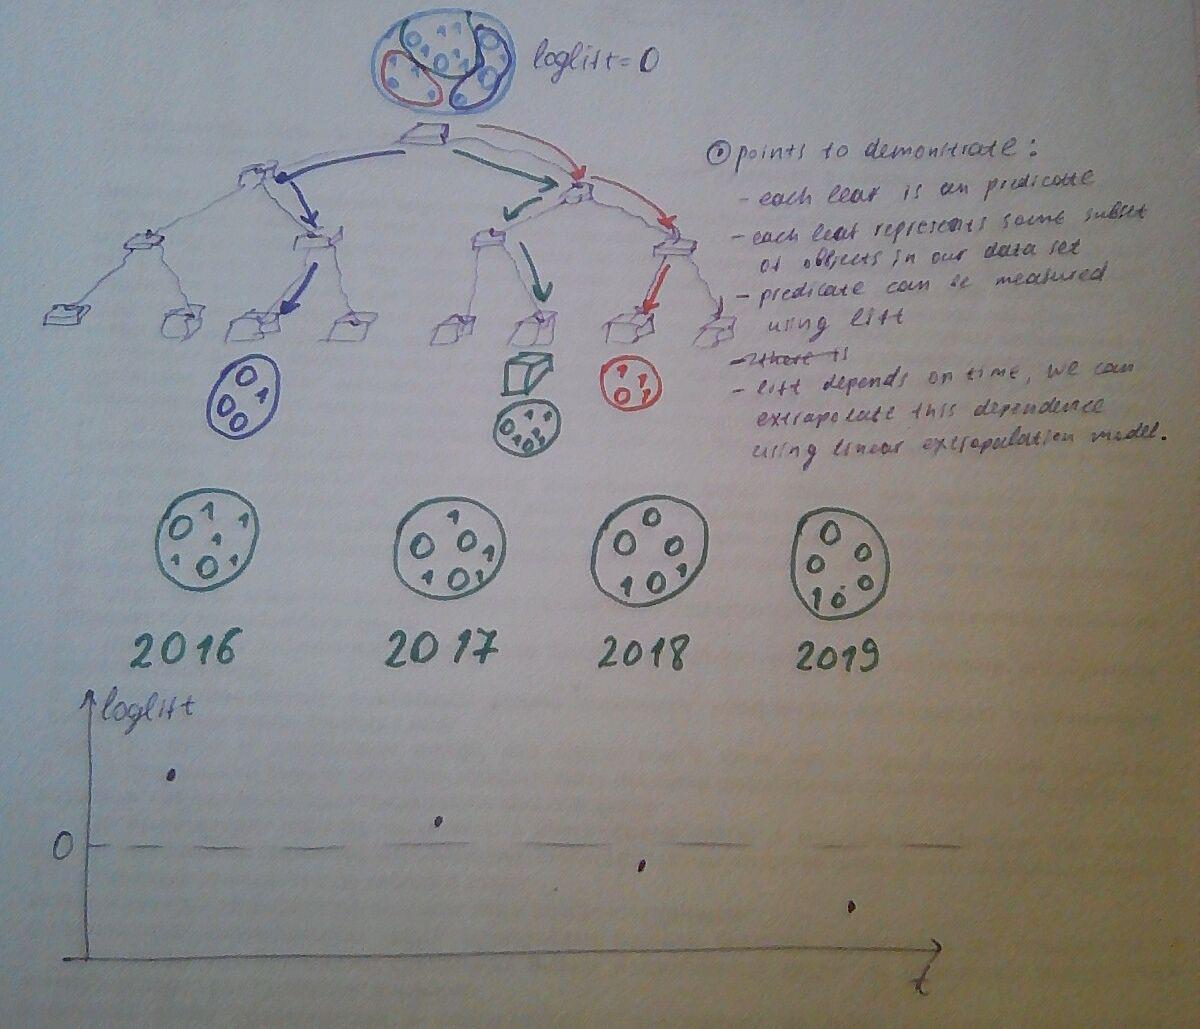 loglift = 0
points to demonstrate:
- each leaf is an predicate
- each leaf represents some subset
of objects in our data set
- predicate can be measured
using lift
- there is
- lift depends on time, we can
extrapolate this dependence
using linear extrapolation model.
2016 2017 2018 2019
loglift
0
t